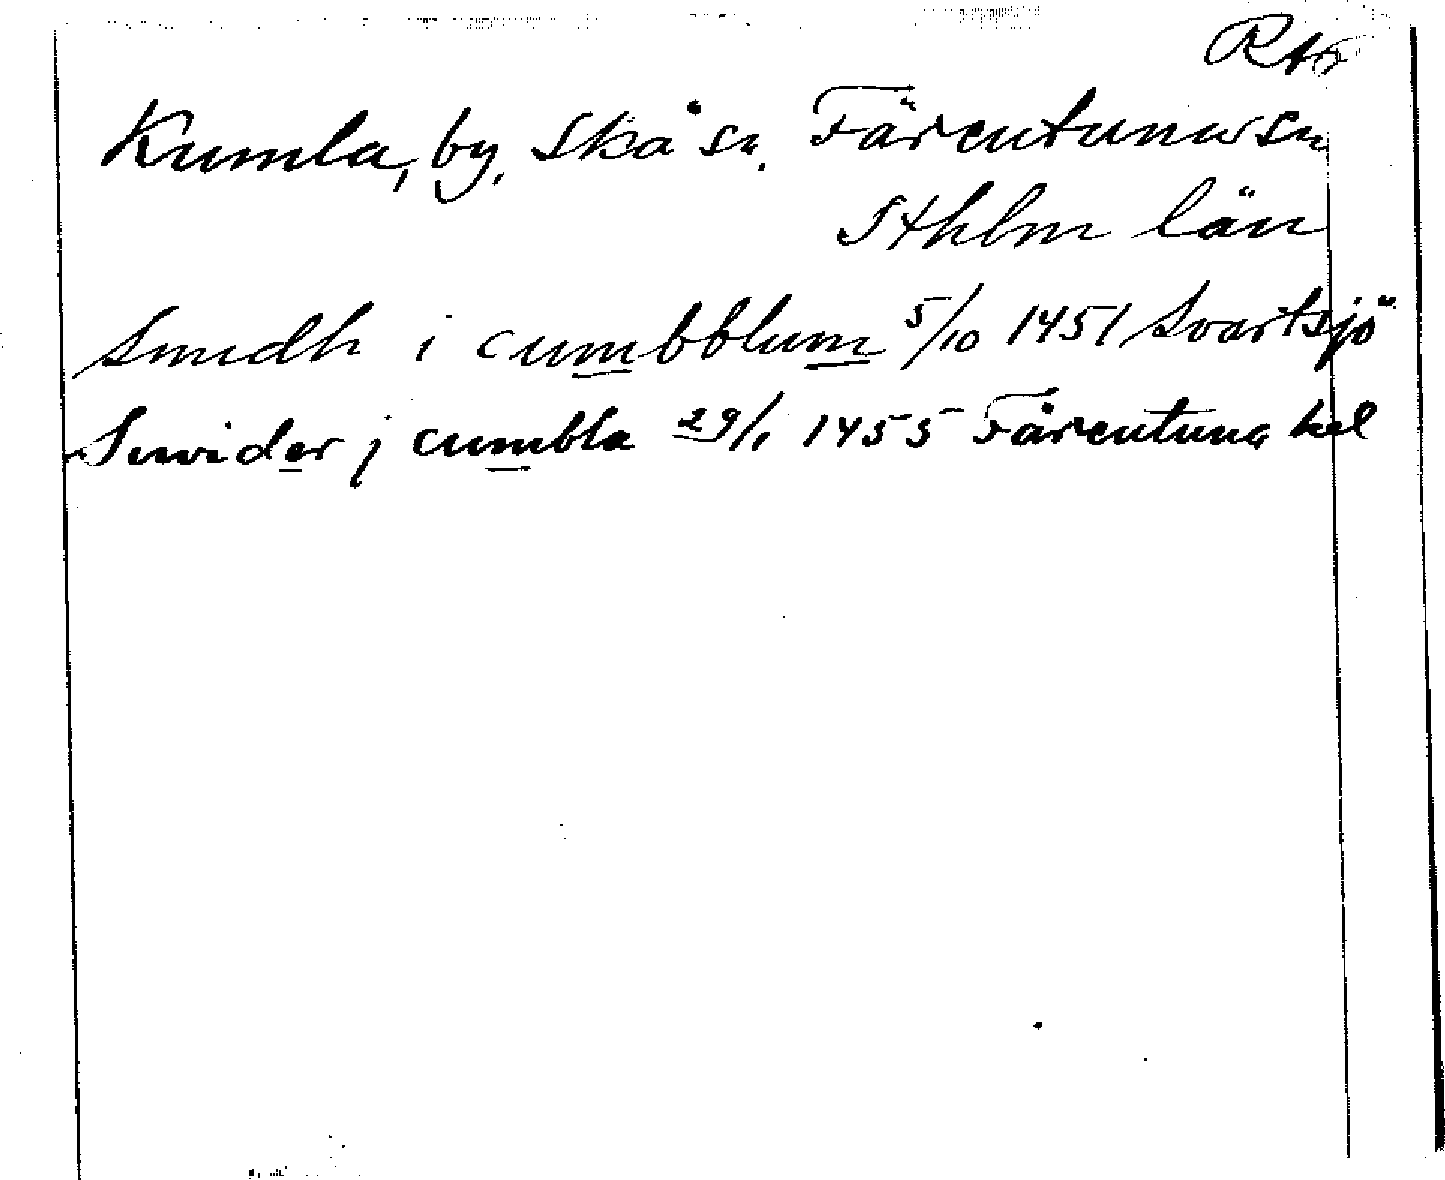 Kumla, by, Skå sn, Färentuna sn
Sthlm län
Smidh i cumbblum 5/10 1451 Svartsjö
Smider j cumbla 29/1 1455 Färentuna hd